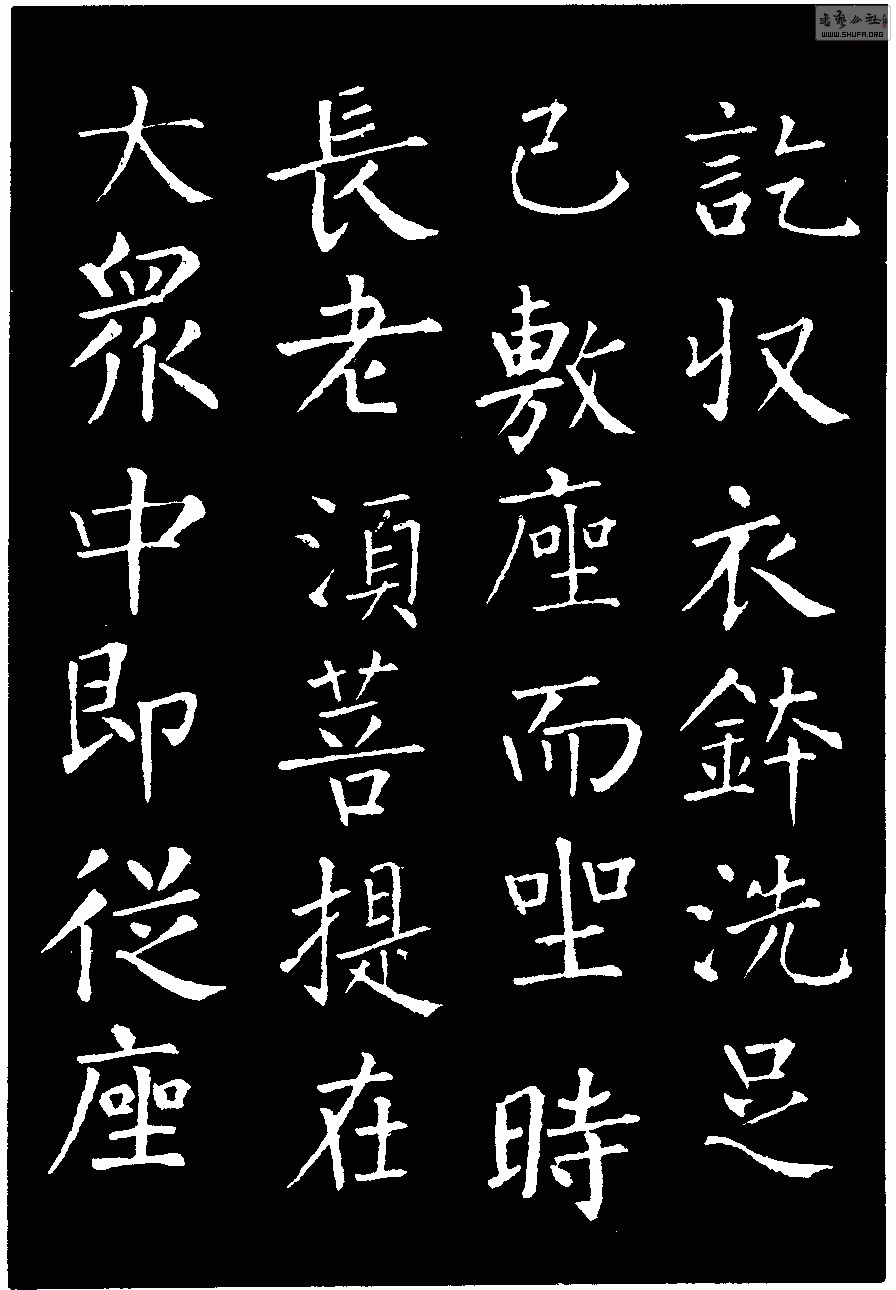 訖収衣鉢洗足
已敷座而坐時
長老須菩提在
大衆中即従座
WWW.SHUFA.ORG